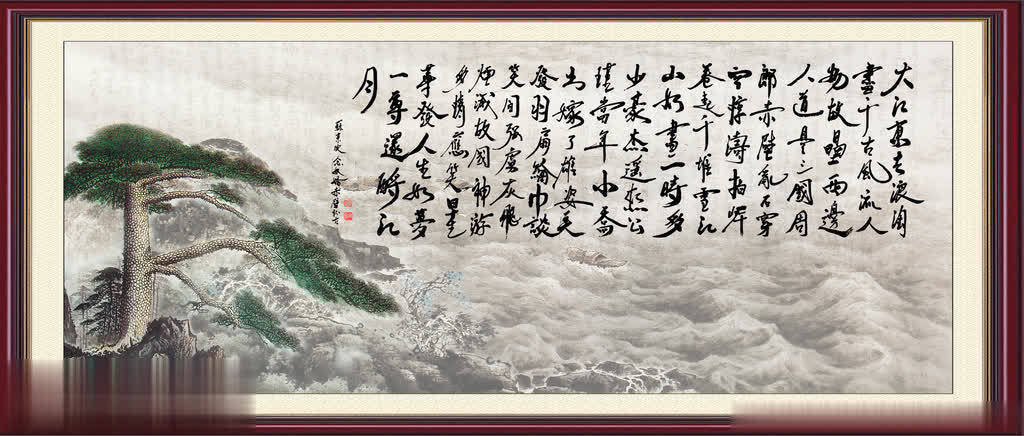 大江東去浪淘
盡千古風流人
物故壘西邊
人道是三國周
郎赤壁亂石穿
空驚濤拍岸
卷起千堆雪江
山如畫一時多
少豪杰遥想公
瑾當年小喬
出嫁了雄姿英
發羽扇綸巾談
笑間強虜灰飛
煙滅故國神游
多情應笑早生
華發人生如夢
一尊還酹江
月
蘇東坡念奴嬌赤壁懷古